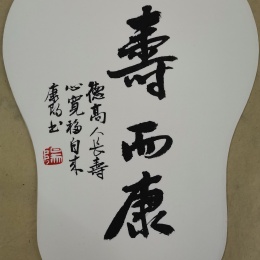 壽而康
德高人長壽
心寬福自來
康
書